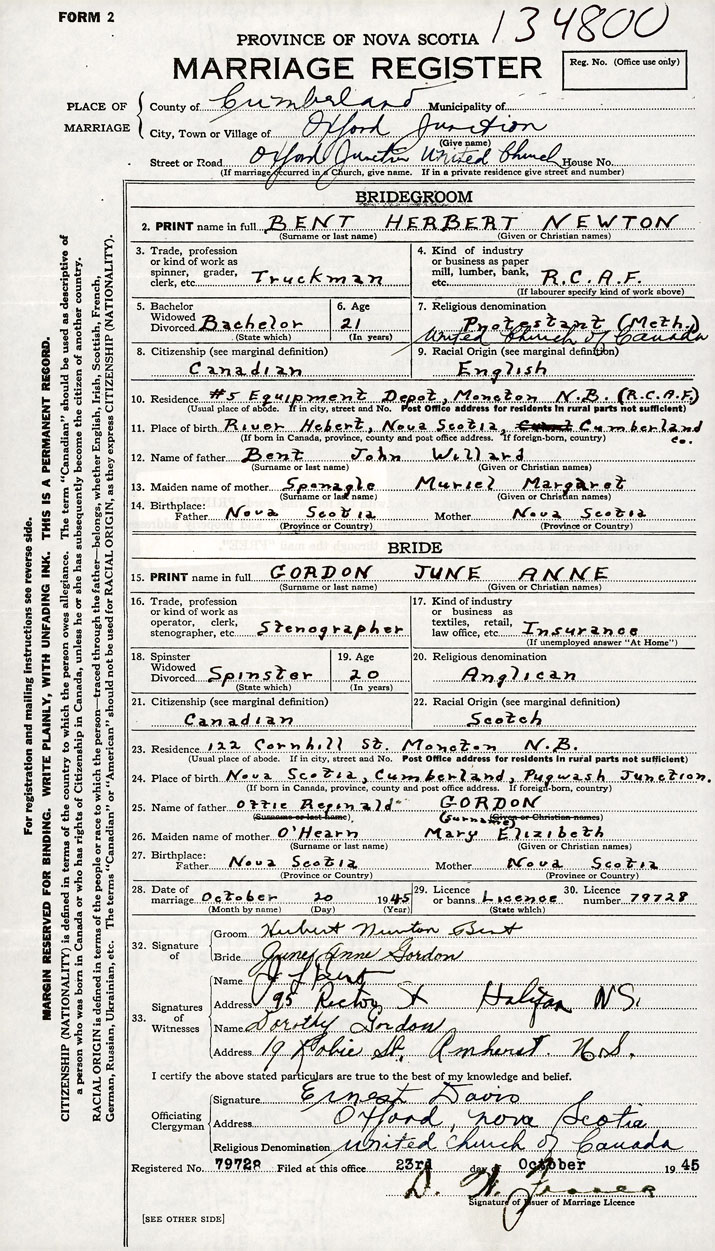 FORM 2
134800
PROVINCE OF NOVA SCOTIA
MARRIAGE REGISTER
Reg. No. (Office use only)
PLACE OF MARRIAGE
County of Cumberland Municipality of
City, Town or Village of Oxford Junction
(Give name)
Street or Road Oxford Junction United Church House No.
(If marriage occurred in a Church, give name. If in a private residence give street and number)
BRIDEGROOM
2. PRINT name in full BENT HERBERT NEWTON
(Surname or last name) (Given or Christian names)
3. Trade, profession or kind of work as spinner, grader, clerk, etc. Truckman
4. Kind of industry or business as paper mill, lumber, bank, etc. R.C.A.F.
(If labourer specify kind of work above)
5. Bachelor Widowed Divorced Bachelor
(State which)
6. Age 21
(In years)
7. Religious denomination Protestant (Meth.)
United Church of Canada
8. Citizenship (see marginal definition) Canadian
9. Racial Origin (see marginal definition) English
10. Residence #5 Equipment Depot, Moncton N.B. (R.C.A.F.)
(Usual place of abode. If in city, street and No. Post Office address for residents in rural parts not sufficient)
11. Place of birth River Hebert, Nova Scotia, Cumberland Co.
(If born in Canada, province, county and post office address. If foreign-born, country)
12. Name of father Bent John Willard
(Surname or last name) (Given or Christian names)
13. Maiden name of mother Spenagle Muriel Margaret
(Surname or last name) (Given or Christian names)
14. Birthplace: Father Nova Scotia Mother Nova Scotia
(Province or Country) (Province or Country)
BRIDE
15. PRINT name in full GORDON JUNE ANNE
(Surname or last name) (Given or Christian names)
16. Trade, profession or kind of work as operator, clerk, stenographer, etc. Stenographer
17. Kind of industry or business as textiles, retail, law office, etc. Insurance
(If unemployed answer "At Home")
18. Spinster Widowed Divorced Spinster
(State which)
19. Age 20
(In years)
20. Religious denomination Anglican
21. Citizenship (see marginal definition) Canadian
22. Racial Origin (see marginal definition) Scotch
23. Residence 122 Cornhill St. Moncton N.B.
(Usual place of abode. If in city, street and No. Post Office address for residents in rural parts not sufficient)
24. Place of birth Nova Scotia, Cumberland, Pugwash Junction.
(If born in Canada, province, county and post office address. If foreign-born, country)
25. Name of father Ottie Reginald GORDON
(Surname or last name) (Surname) (Given or Christian names)
26. Maiden name of mother O'Hearn Mary Elizibeth
(Surname or last name) (Given or Christian names)
27. Birthplace: Father Nova Scotia Mother Nova Scotia
(Province or Country) (Province or Country)
28. Date of marriage October 20 1945
(Month by name) (Day) (Year)
29. Licence or banns Licence
(State which)
30. Licence number 79728
32. Signature of
Groom Herbert Newton Bent
Bride June Anne Gordon
33. Signatures of Witnesses
Name Bent
Address 95 St Halifax N.S.
Name Dorothy Gordon
Address 19 Robie St. Amherst. N.S.
I certify the above stated particulars are true to the best of my knowledge and belief.
Officiating Clergyman
Signature Ernest Davis
Address Oxford, Nova Scotia
Religious Denomination United Church of Canada
Registered No. 79728 Filed at this office 23rd day of October 1945
D. H.
Signature of Issuer of Marriage Licence
[SEE OTHER SIDE]
For registration and mailing instructions see reverse side.
MARGIN RESERVED FOR BINDING. WRITE PLAINLY, WITH UNFADING INK. THIS IS A PERMANENT RECORD.
CITIZENSHIP (NATIONALITY) is defined in terms of the country to which the person owes allegiance. The term "Canadian" should be used as descriptive of
a person who was born in Canada or who has rights of Citizenship in Canada, unless he or she has subsequently become the citizen of another country.
RACIAL ORIGIN is defined in terms of the people or race to which the person—traced through the father—belongs, whether English, Irish, Scottish, French,
German, Russian, Ukrainian, etc. The terms "Canadian" or "American" should not be used for RACIAL ORIGIN, as they express CITIZENSHIP (NATIONALITY).